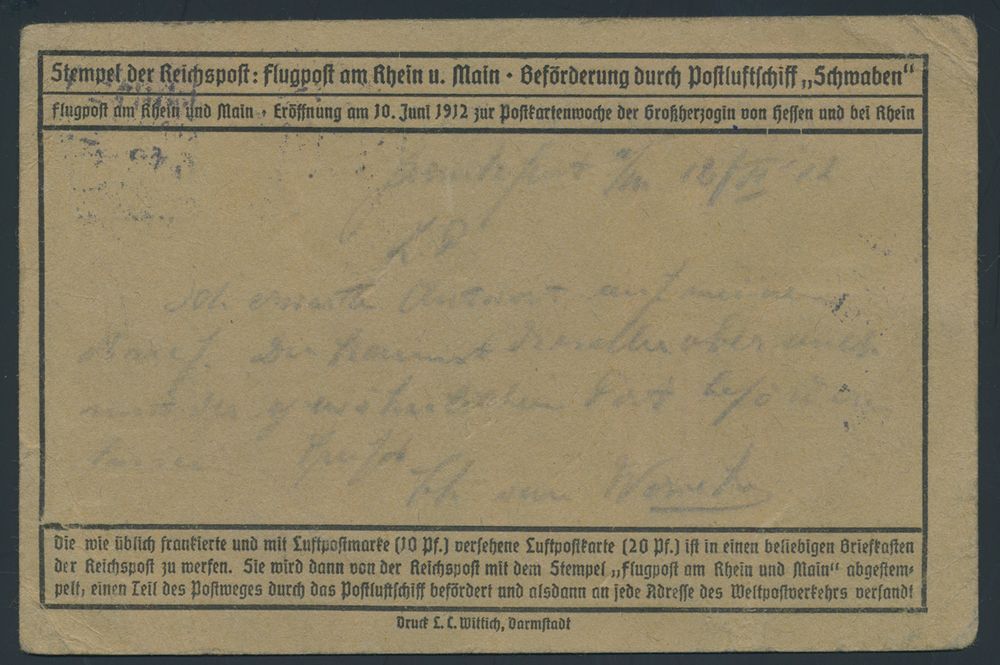 Stempel der Reichspost: Flugpost am Rhein u. Main · Beförderung durch Postluftschiff „Schwaben“
Flugpost am Rhein und Main · Eröffnung am 10. Juni 1912 zur Postkartenwoche der Großherzogin von Hessen und bei Rhein
Frankfurt a/M 12/VI 12
Ich erwarte Antwort auf meinen
Brief. Du kannst dieselbe aber auch
mit der gewöhnlichen Post befördern
lassen
Die wie üblich frankierte und mit Luftpostmarke (10 Pf.) versehene Luftpostkarte (20 Pf.) ist in einen beliebigen Briefkasten
der Reichspost zu werfen. Sie wird dann von der Reichspost mit dem Stempel „Flugpost am Rhein und Main“ abgestem-
pelt, einen Teil des Postweges durch das Postluftschiff befördert und alsdann an jede Adresse des Weltpostverkehrs versandt
Druck L. C. Wittich, Darmstadt